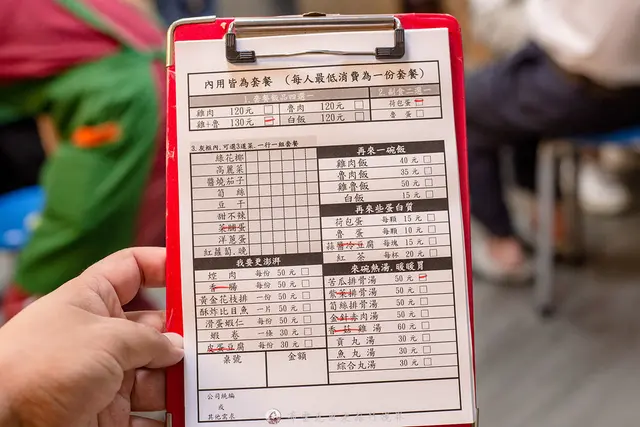 內用皆為套餐 (每人最低消費為一份套餐)
1. 套餐飯品四選一
2. 副食二選一
雞肉 120元 魯肉 120元 荷包蛋
雞+魯 130元 白飯 120元 魯蛋
3. 灰框內,可選3道菜,一行一組套餐
綠花椰
高麗菜
醬燒茄子
筍絲
豆干
甜不辣
菜脯蛋
洋蔥蛋
紅蘿蔔.晚
再來一碗飯
雞肉飯 40元
魯肉飯 35元
雞魯飯 50元
白飯 15元
再來些蛋白質
荷包蛋 每顆 15元
魯蛋 每顆 10元
蒜醬冷豆腐 每塊 15元
紅茶 每杯 20元
我要更澎湃
焢肉 每份 50元
香腸 每份 50元
黃金花枝排 一份 50元
酥炸比目魚 一片 50元
滑蛋蝦仁 每份 50元
蝦卷 一條 30元
皮蛋豆腐 每份 30元
來碗熱湯,暖暖胃
苦瓜排骨湯 50元
紫菜排骨湯 50元
筍絲排骨湯 50元
金針赤肉湯 50元
香菇雞湯 60元
貢丸湯 30元
魚丸湯 30元
綜合丸湯 30元
桌號 金額
公司統編
或
其他需求